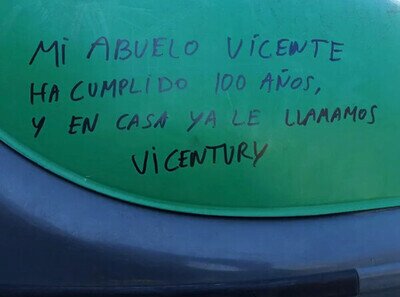 MI ABUELO VICENTE
HA CUMPLIDO 100 AÑOS,
Y EN CASA YA LE LLAMAMOS
VICENTURY